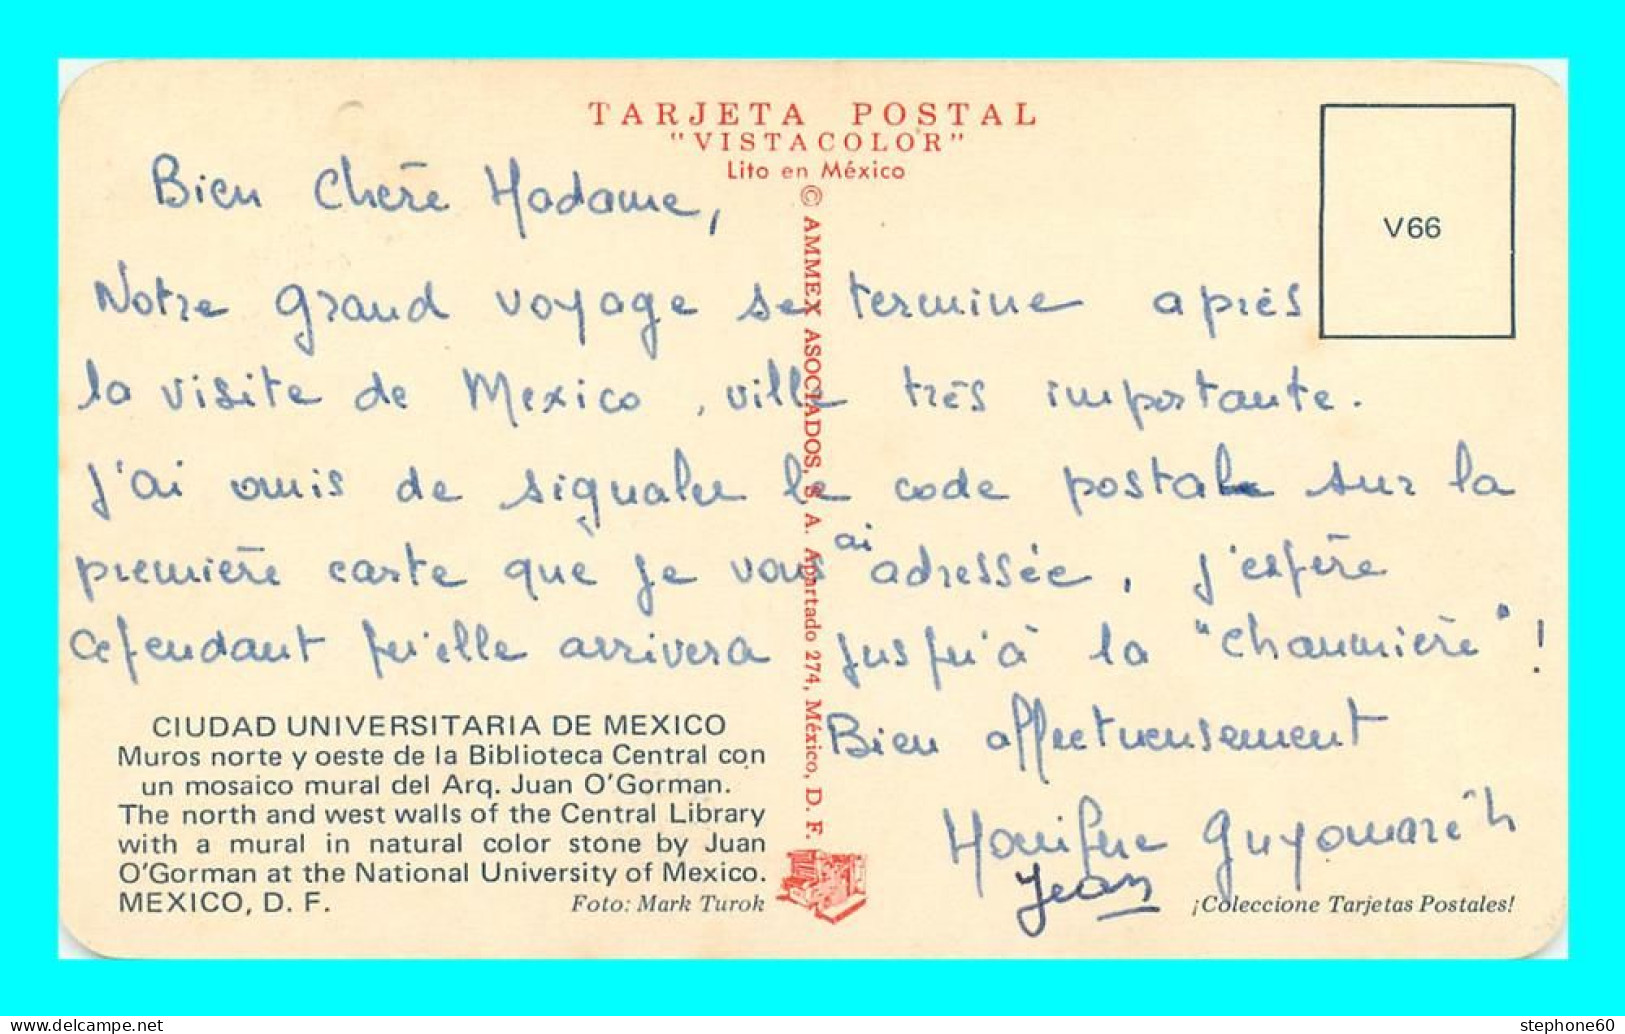 TARJETA POSTAL
"VISTACOLOR"
Lito en México
© AMMEX ASOCIADOS, S. A. Apartado 274, México, D. F.
V66
Bien Chère Madame,
Notre grand voyage se termine après
la visite de Mexico, ville très importante.
J'ai omis de signaler le code postal sur la
première carte que je vous ai adressée, j'espère
cependant qu'elle arrivera jusqu'à la "chaumière"!
Bien affectueusement
Guyomarc'h
Jean
CIUDAD UNIVERSITARIA DE MEXICO
Muros norte y oeste de la Biblioteca Central con
un mosaico mural del Arq. Juan O'Gorman.
The north and west walls of the Central Library
with a mural in natural color stone by Juan
O'Gorman at the National University of Mexico.
MEXICO, D. F.
Foto: Mark Turok
¡Coleccione Tarjetas Postales!
www.delcampe.net
stephone60